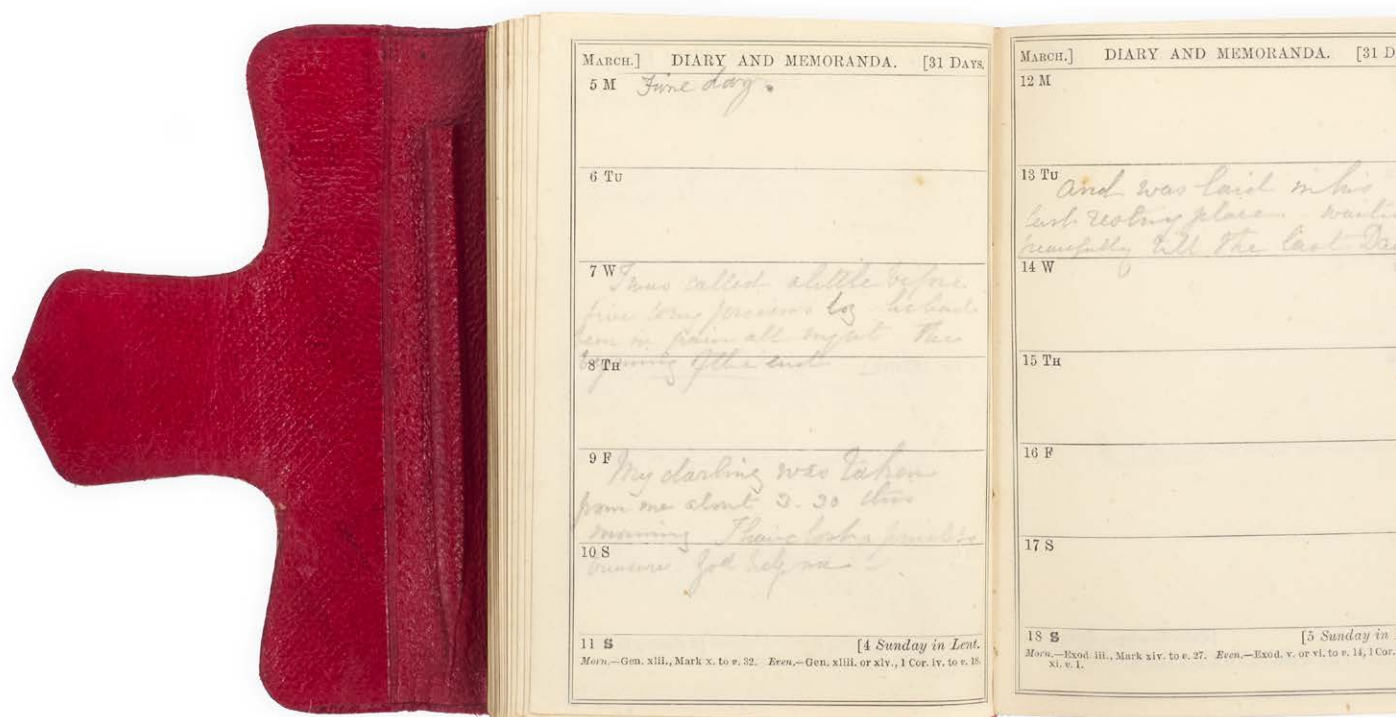 MARCH.] DIARY AND MEMORANDA. [31 DAYS.
5 M Fine day.
6 TU
7 W I was called a little before
five to my precious boy he had
been in pain all night The
beginning of the end
8 TH
9 F My darling was taken
from me about 3.30 this
morning I have lost a priceless
10 S treasure God help me
11 S [4 Sunday in Lent.
Morn.—Gen. xlii., Mark x. to v. 32. Even.—Gen. xliii. or xlv., 1 Cor. iv. to v. 18.
MARCH.] DIARY AND MEMORANDA. [31 D
12 M
13 TU and was laid in his
last resting place
peacefully till the last Day
14 W
15 TH
16 F
17 S
18 S [5 Sunday in
Morn.—Exod. iii., Mark xiv. to v. 27. Even.—Exod. v. or vi. to v. 14, 1 Cor.
xi. v. 1.